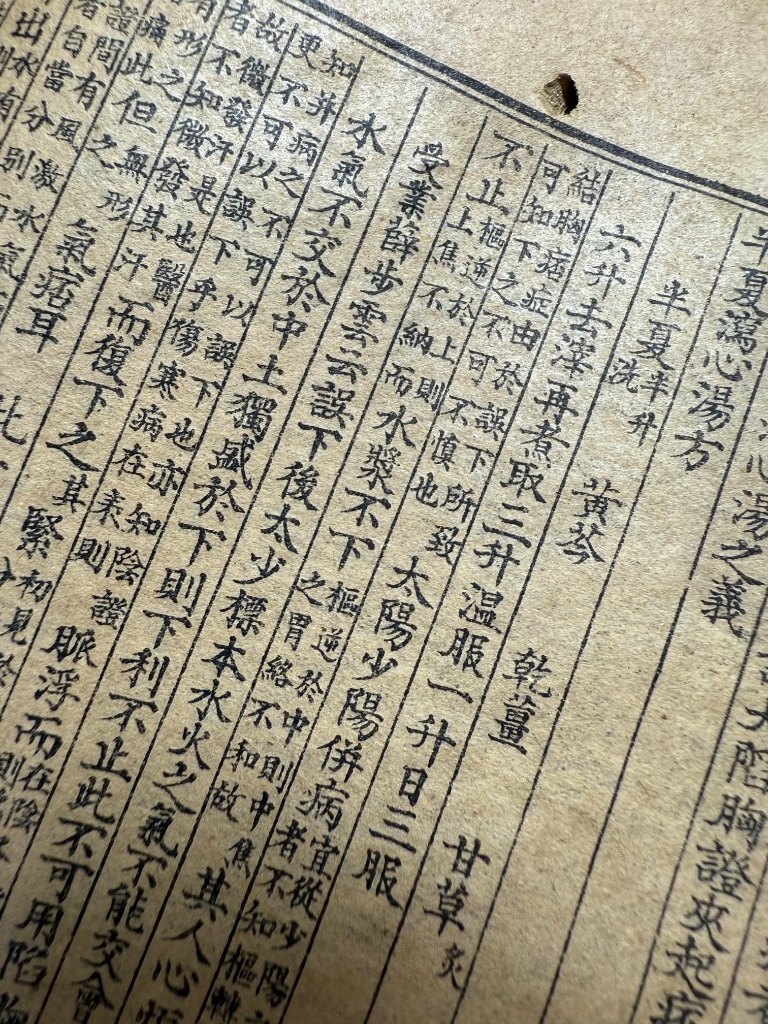 心湯之義
大陷胸證夾起
半夏瀉心湯方
半夏半升洗 黃芩 乾薑 甘草炙
六升去滓再煮取三升温服一升日三服
結胸痞症由於誤下所致
可知下之不可不慎也
太陽少陽併病
宜從少陽
者不知樞轉
不止
樞逆於上則
上焦不納而
水漿不下
樞逆於中則中焦
之胃絡不和故
其人心
受業薛步雲云誤下後太少標本水火之氣不能交會
水氣不交於中土獨盛於下則下利不止此不可用陷胸
知并病之不可以誤下也亦知陰證
更不可以誤下乎傷寒病在表則
脈浮而
在陰
故微發汗是也醫
者不知微發其汗
而復下之
其
緊
初見於
有形之
痛此但無形
之
氣痞耳
間有風激水氣
自當分別
出水